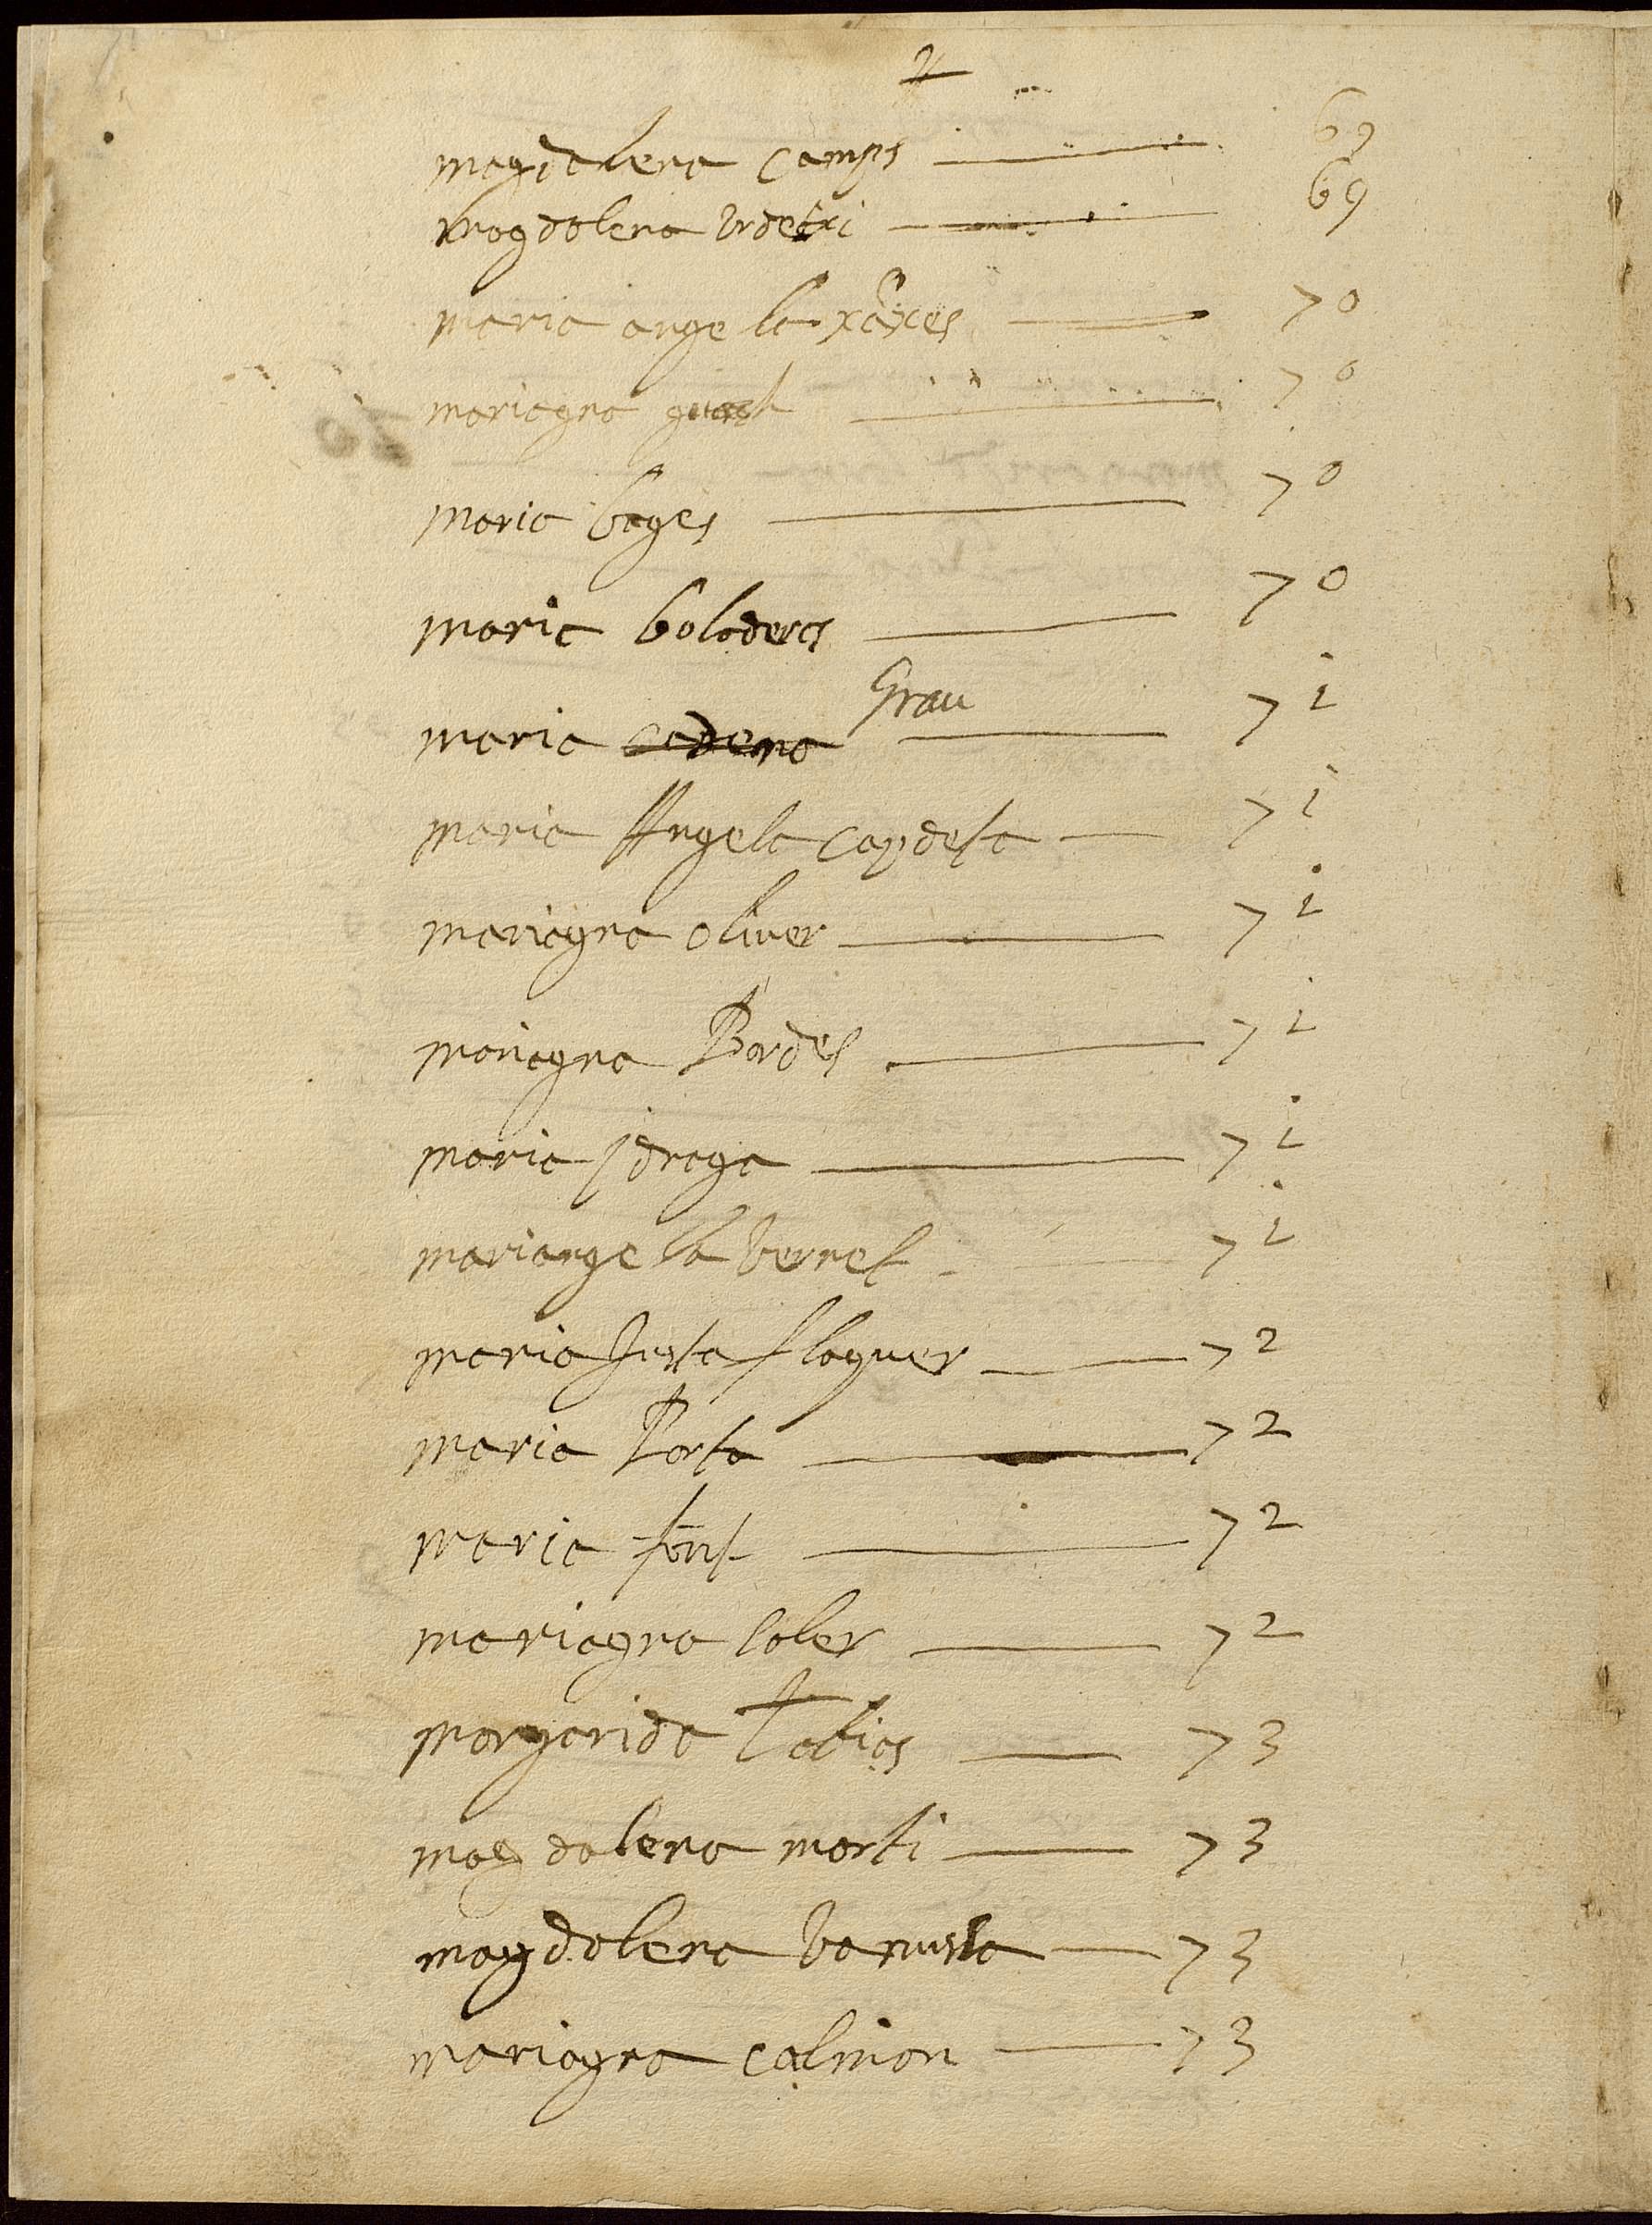 magdalena camps 69
magdalena Vrdetxi 69
maria angela xãxes 70
mariagna guasch 70
maria bages 70
maria baladeres 70
maria cadena Grau 71
maria Angela capdeta 71
mariagna oliver 71
mariagna Bordes 71
maria jdraga 71
mariangela vernet 71
maria Justa flaquer 72
maria Porta 72
maria font 72
mariagna soler 72
margarida Tobias 73
magdalena marti 73
magdalena 73
mariagna calmon 73